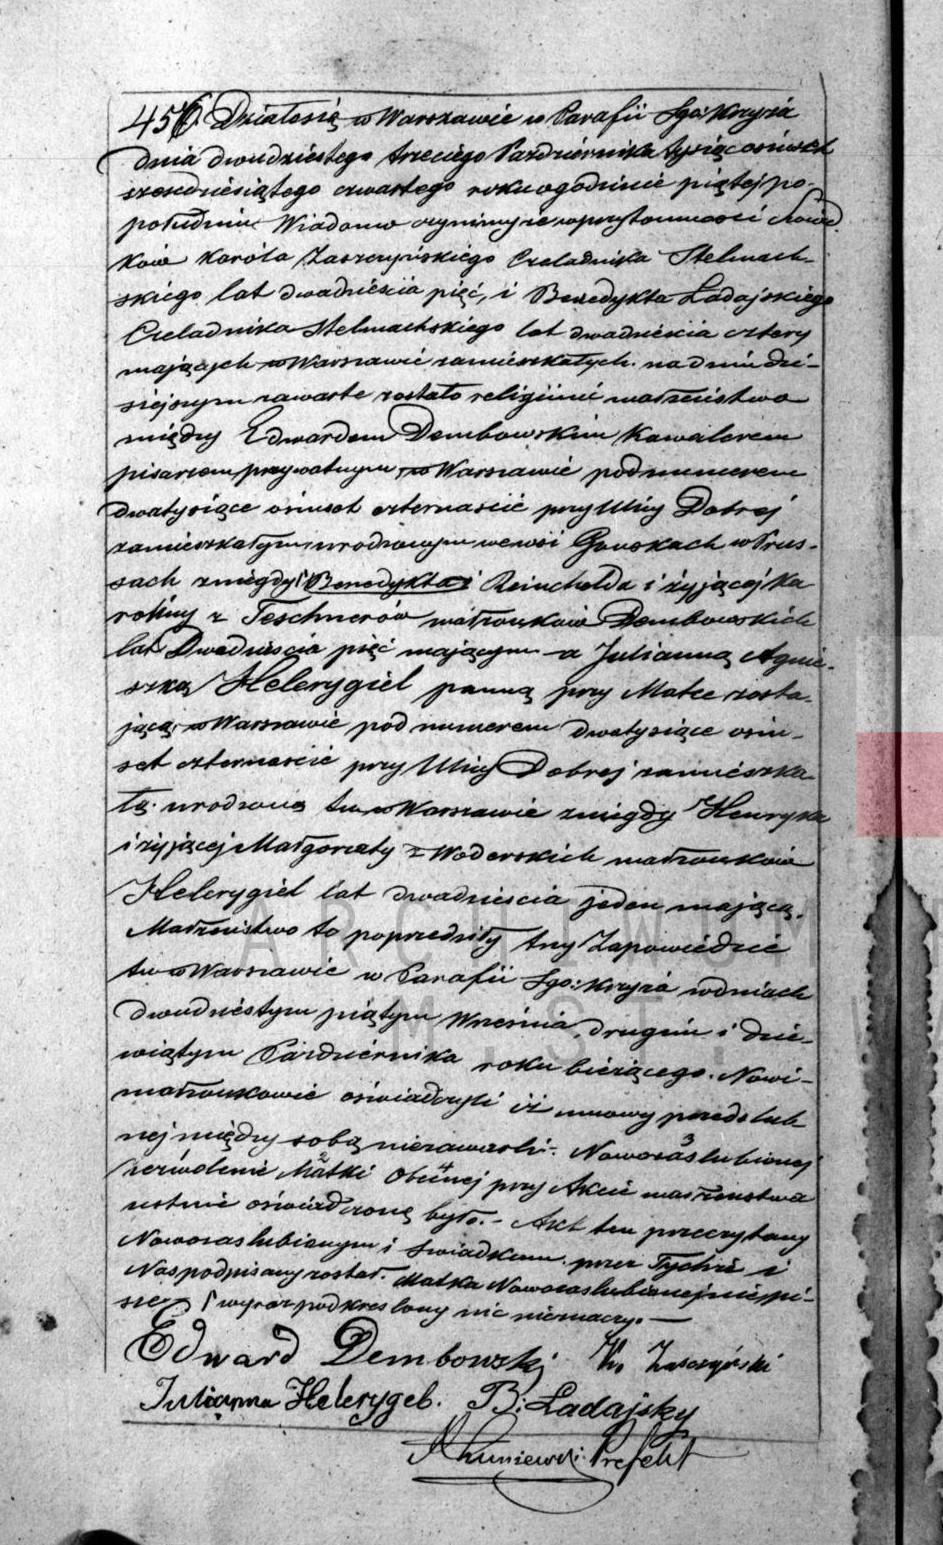 456 Działo się w Warszawie w Parafii Sgo: Krzyża
dnia dwudziestego trzeciego Października tysiąc ośmset
sześćdziesiątego czwartego roku o godzinie piątej po-
południu Wiadomo czynimy że w przytomności Świad-
ków Karóla Zaszczyńskiego Czeladnika Stelmach-
skiego lat dwadzieścia pięć, i Benedykta Ladajskiego
Czeladnika Stelmachskiego lat dwadzieścia cztery
mających w Warszawie zamieszkałych. na dniu dzi-
siejszym zawarte zostało religijne małżeństwo
między Edwardem Dembowskim Kawalerem
pisarzem prywatnym w Warszawie pod numerem
dwatysiące ośmset czternaście przy Ulicy Dobrej
zamieszkałym, urodzonym we wsi w Prus-
sach z niegdy Benedykta i Reincholda i żyjącej Ka
roliny z Teschnerów małżonków Dembowskich
lat Dwadzieścia pięć mającym a Julianną Agnie-
szką Helerygiel panną przy Matce zosta-
jącą w Warszawie pod numerem dwatysiące ośm-
set czternaście przy Ulicy Dobrej zamieszka
łą urodzoną tu w Warszawie z niegdy Henryka
i żyjącej Małgorzaty z Woderskich małżonków
Helerygiel lat dwadzieścia jeden mającą.
Małżeństwo to poprzedziły trzy Zapowiedzie
tu w Warszawie w Parafii Sgo: Krzyża w dniach
dwudziestym piątym Września drugim i dzie-
wiątym Października roku bieżącego. Nowi-
małżonkowie oświadczyli iż umowy przedslub
nej między sobą niezawarli. Nowozaslubionej 3
zezwolenie Mátki 2 Obecnej 4 przy Akcie małżeństwa
ustnie oświadczoną było.- Akt ten przeczytany
Nowozaslubionym i świadkom przez Tychże i
Nas podpisany został. Matka Nowozaslubionej nie pi-
sze wyraz podkreslony nic nieznaczy. —
Edward Dembowski K. Zaszczyński
Julianna Helerygeb. B: Ladajsky
Prefekt
ARCHIWUM
M.ST.